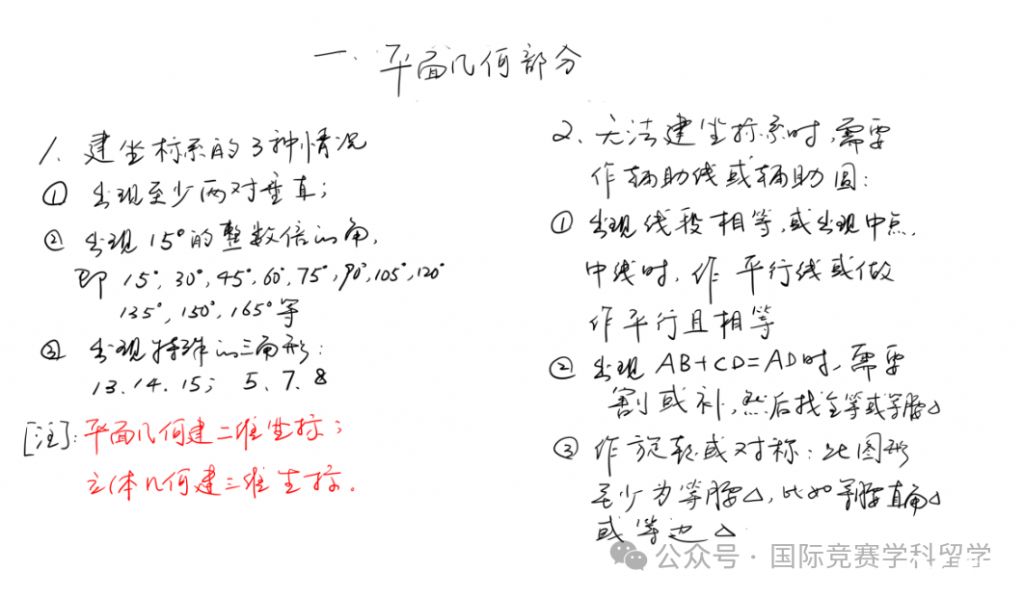 一. 平面几何部分
1. 建坐标系的3种情况
① 出现至少两对垂直;
② 出现15°的整数倍的角,
即 15°, 30°, 45°, 60°, 75°, 90°, 105°, 120°
135°, 150°, 165°等
③ 出现特殊的三角形:
13. 14. 15; 5. 7. 8
[注]: 平面几何建二维坐标;
立体几何建三维坐标.
2. 无法建坐标系时,需要
作辅助线或辅助圆:
① 出现线段相等,或出现中点,
中线时, 作 平行线或做
作平行且相等
② 出现 AB+CD=AD时,需要
割或补,然后找全等或等腰△
③ 作旋转或对称: 此图形
至少为等腰△, 比如等腰直角△
或等边△
公众号·国际竞赛学科留学